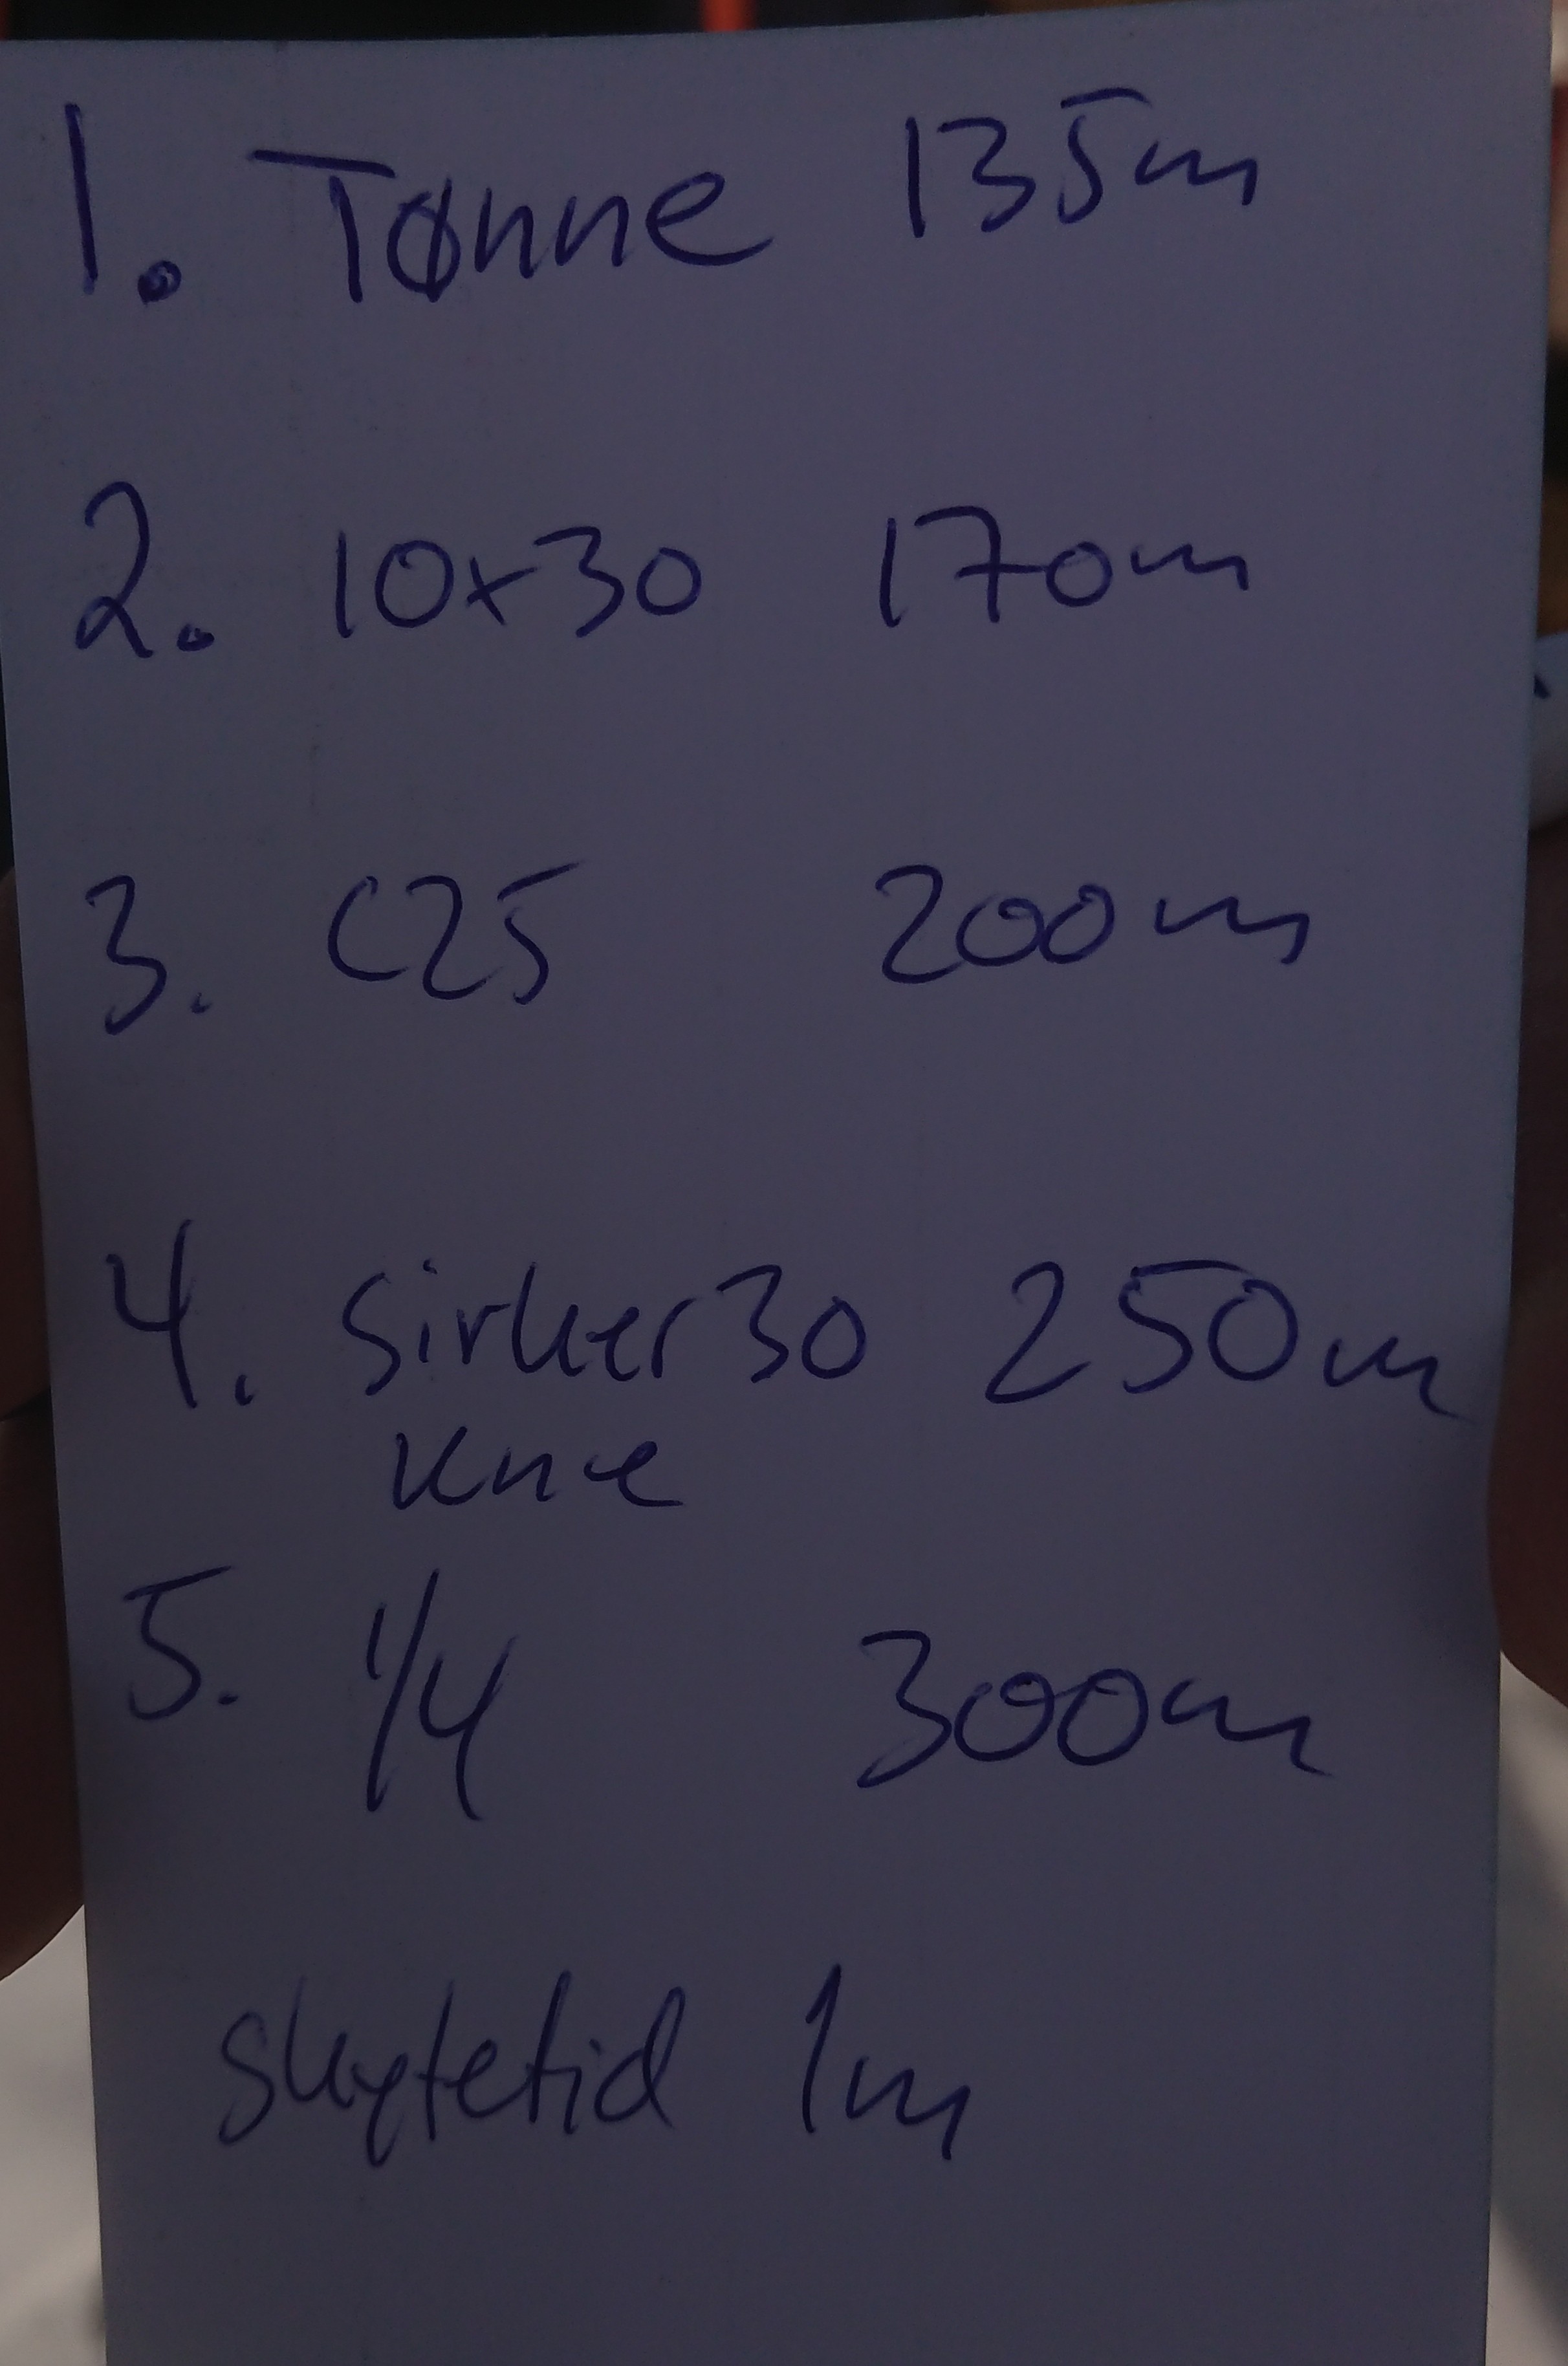 1. Tønne 135m
2. 10x30 170m
3. C25 200m
4. Sirkel 30 250m
Kne
5. 1/4 300m
skytetid 1m